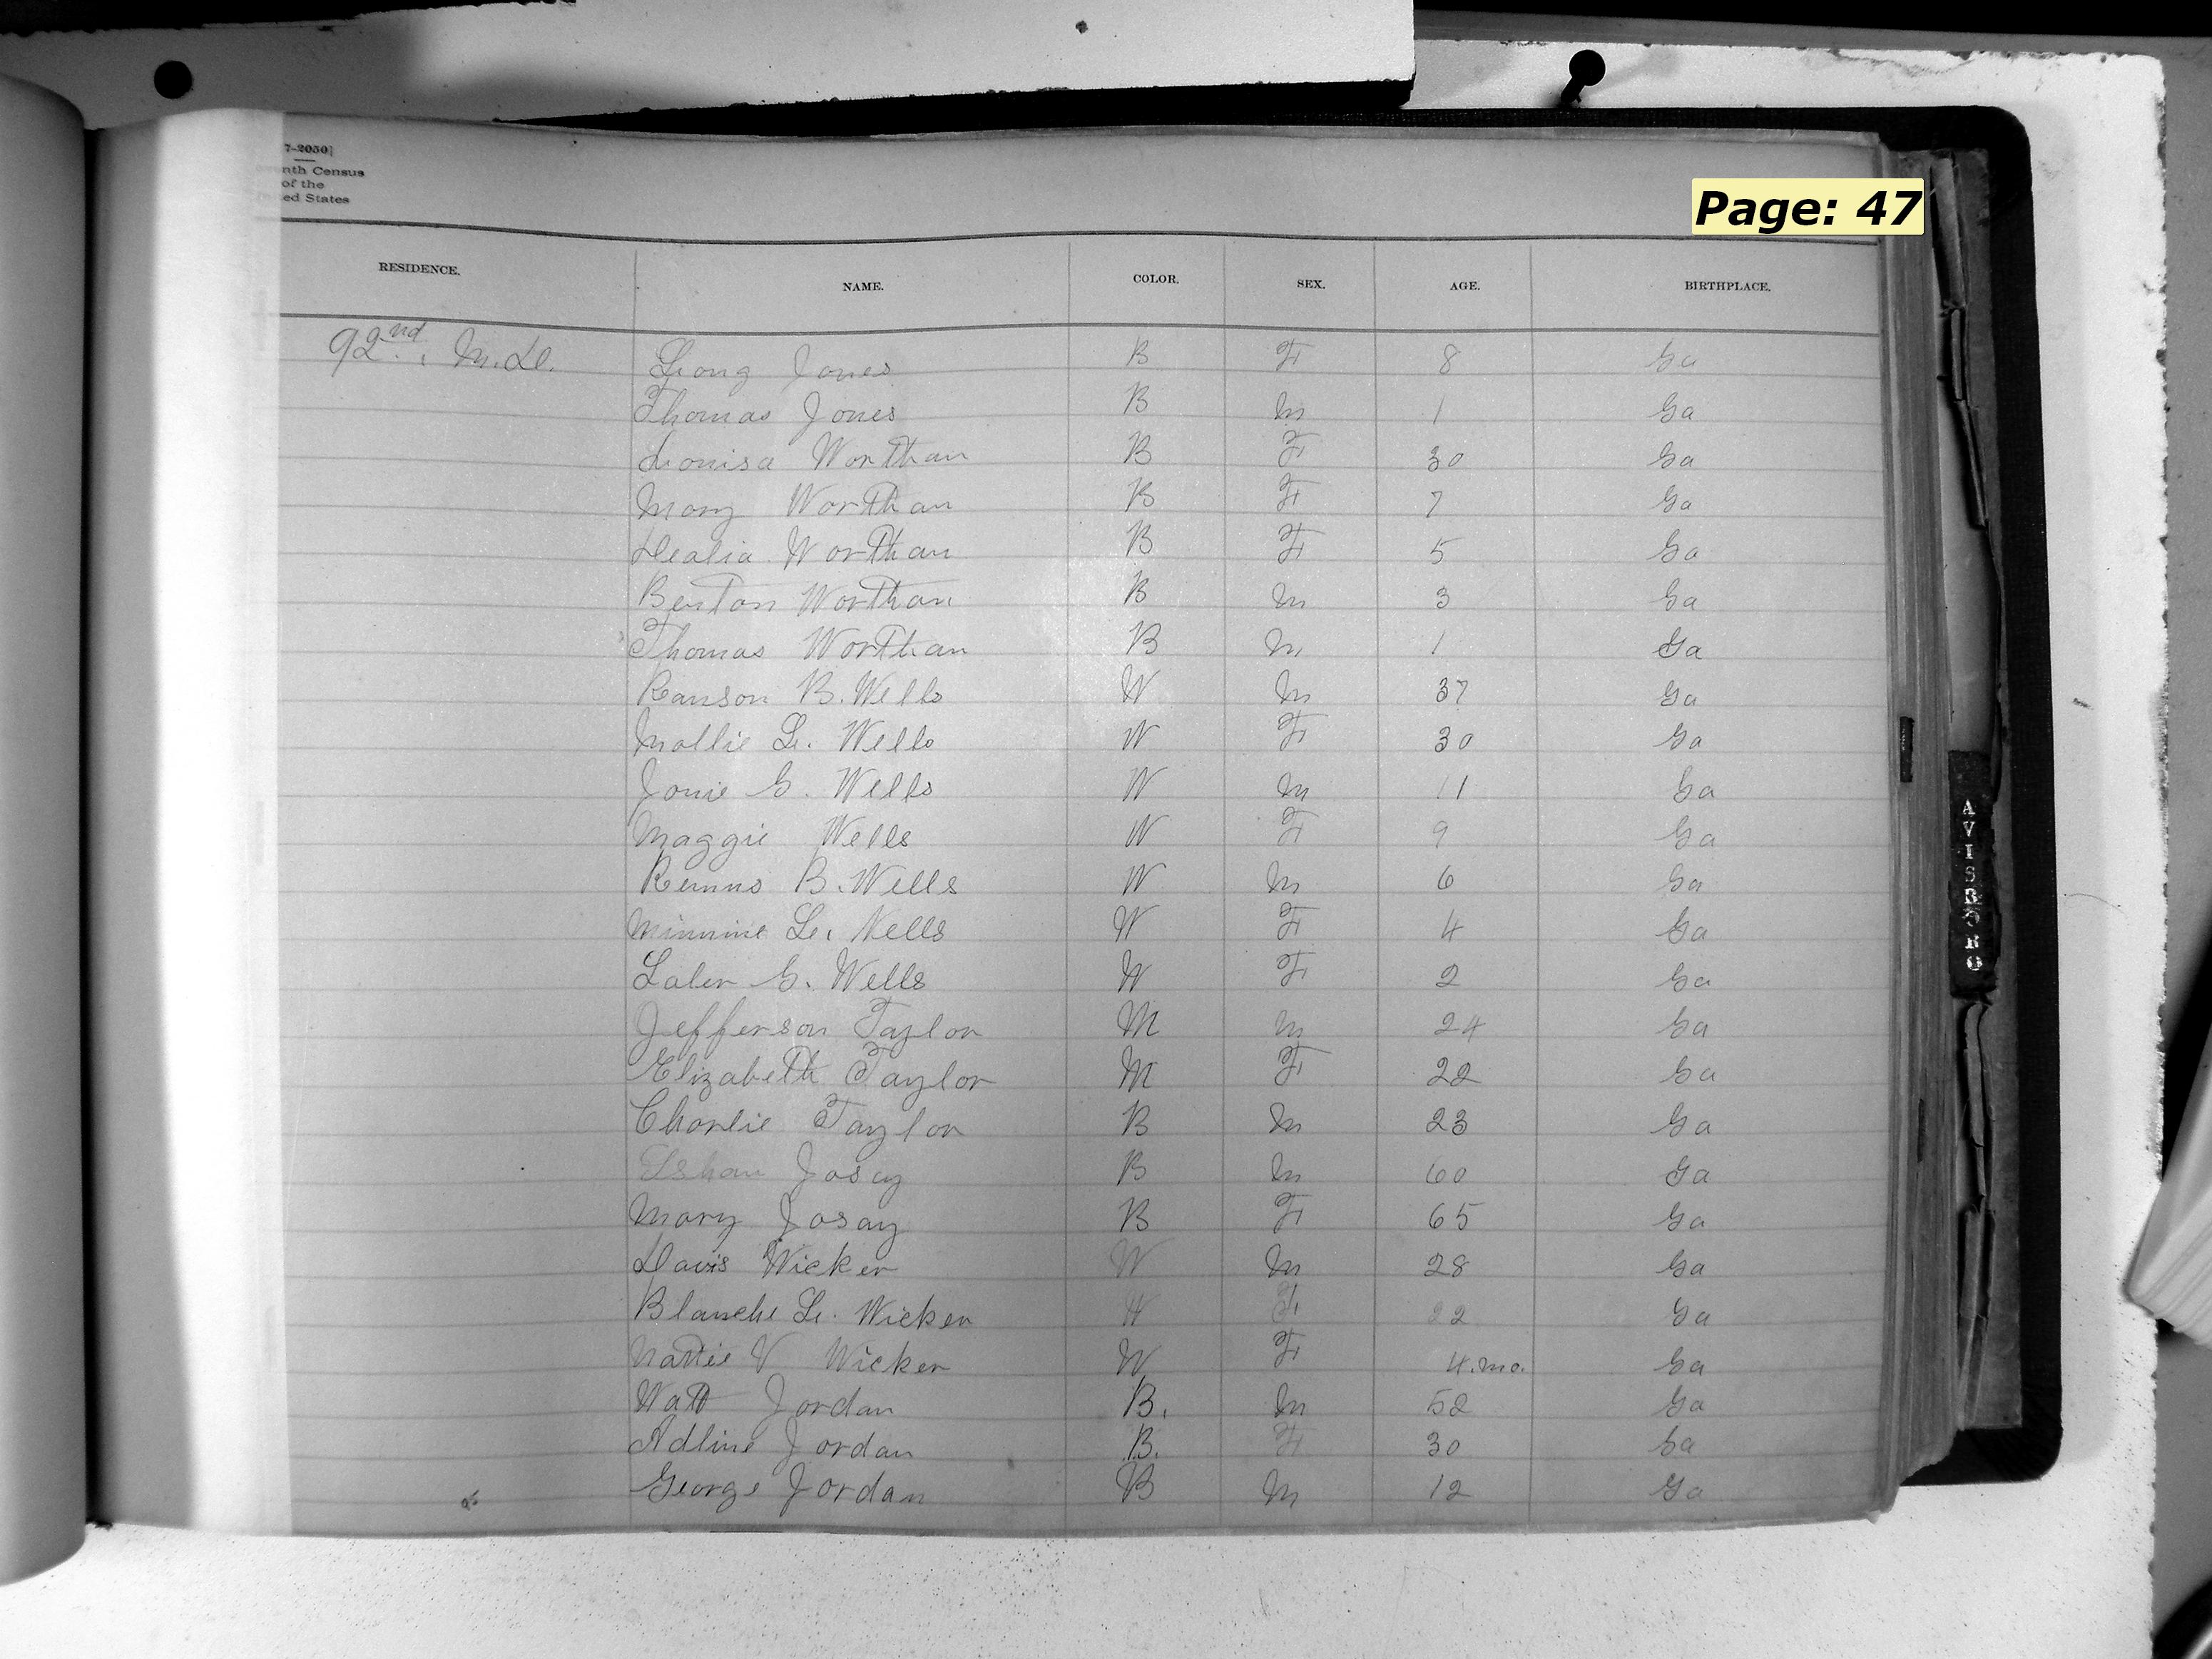 7-2050]
nth Census
of the
ed States
Page: 47
RESIDENCE. NAME. COLOR. SEX. AGE. BIRTHPLACE.
92nd. M.D. Jones B F 8 Ga
Thomas Jones B M 1 Ga
Louisa Worthan B F 30 Ga
Mary Worthan B F 7 Ga
Dealia Worthan B F 5 Ga
Benton Worthan B M 3 Ga
Thomas Worthan B M 1 Ga
Ranson B. Wells W M 37 Ga
Mollie L. Wells W F 30 Ga
G. Wells W M 11 Ga
Maggie Wells W F 9 Ga
B. Wells W M 6 Ga
Minnine L. Wells W F 4 Ga
G. Wells W F 2 Ga
Jefferson Taylor M M 24 Ga
Elizabeth Taylor M F 22 Ga
Charlie Taylor B M 23 Ga
Josey B M 60 Ga
Mary Josay B F 65 Ga
Davis Wicker W M 28 Ga
Blanche L. Wicker W F 22 Ga
Mattie V Wicker W F 4.mo. Ga
Watt Jordan B. M 52 Ga
Adline Jordan B. F 30 Ga
George Jordan B M 12 Ga
AVISBORO